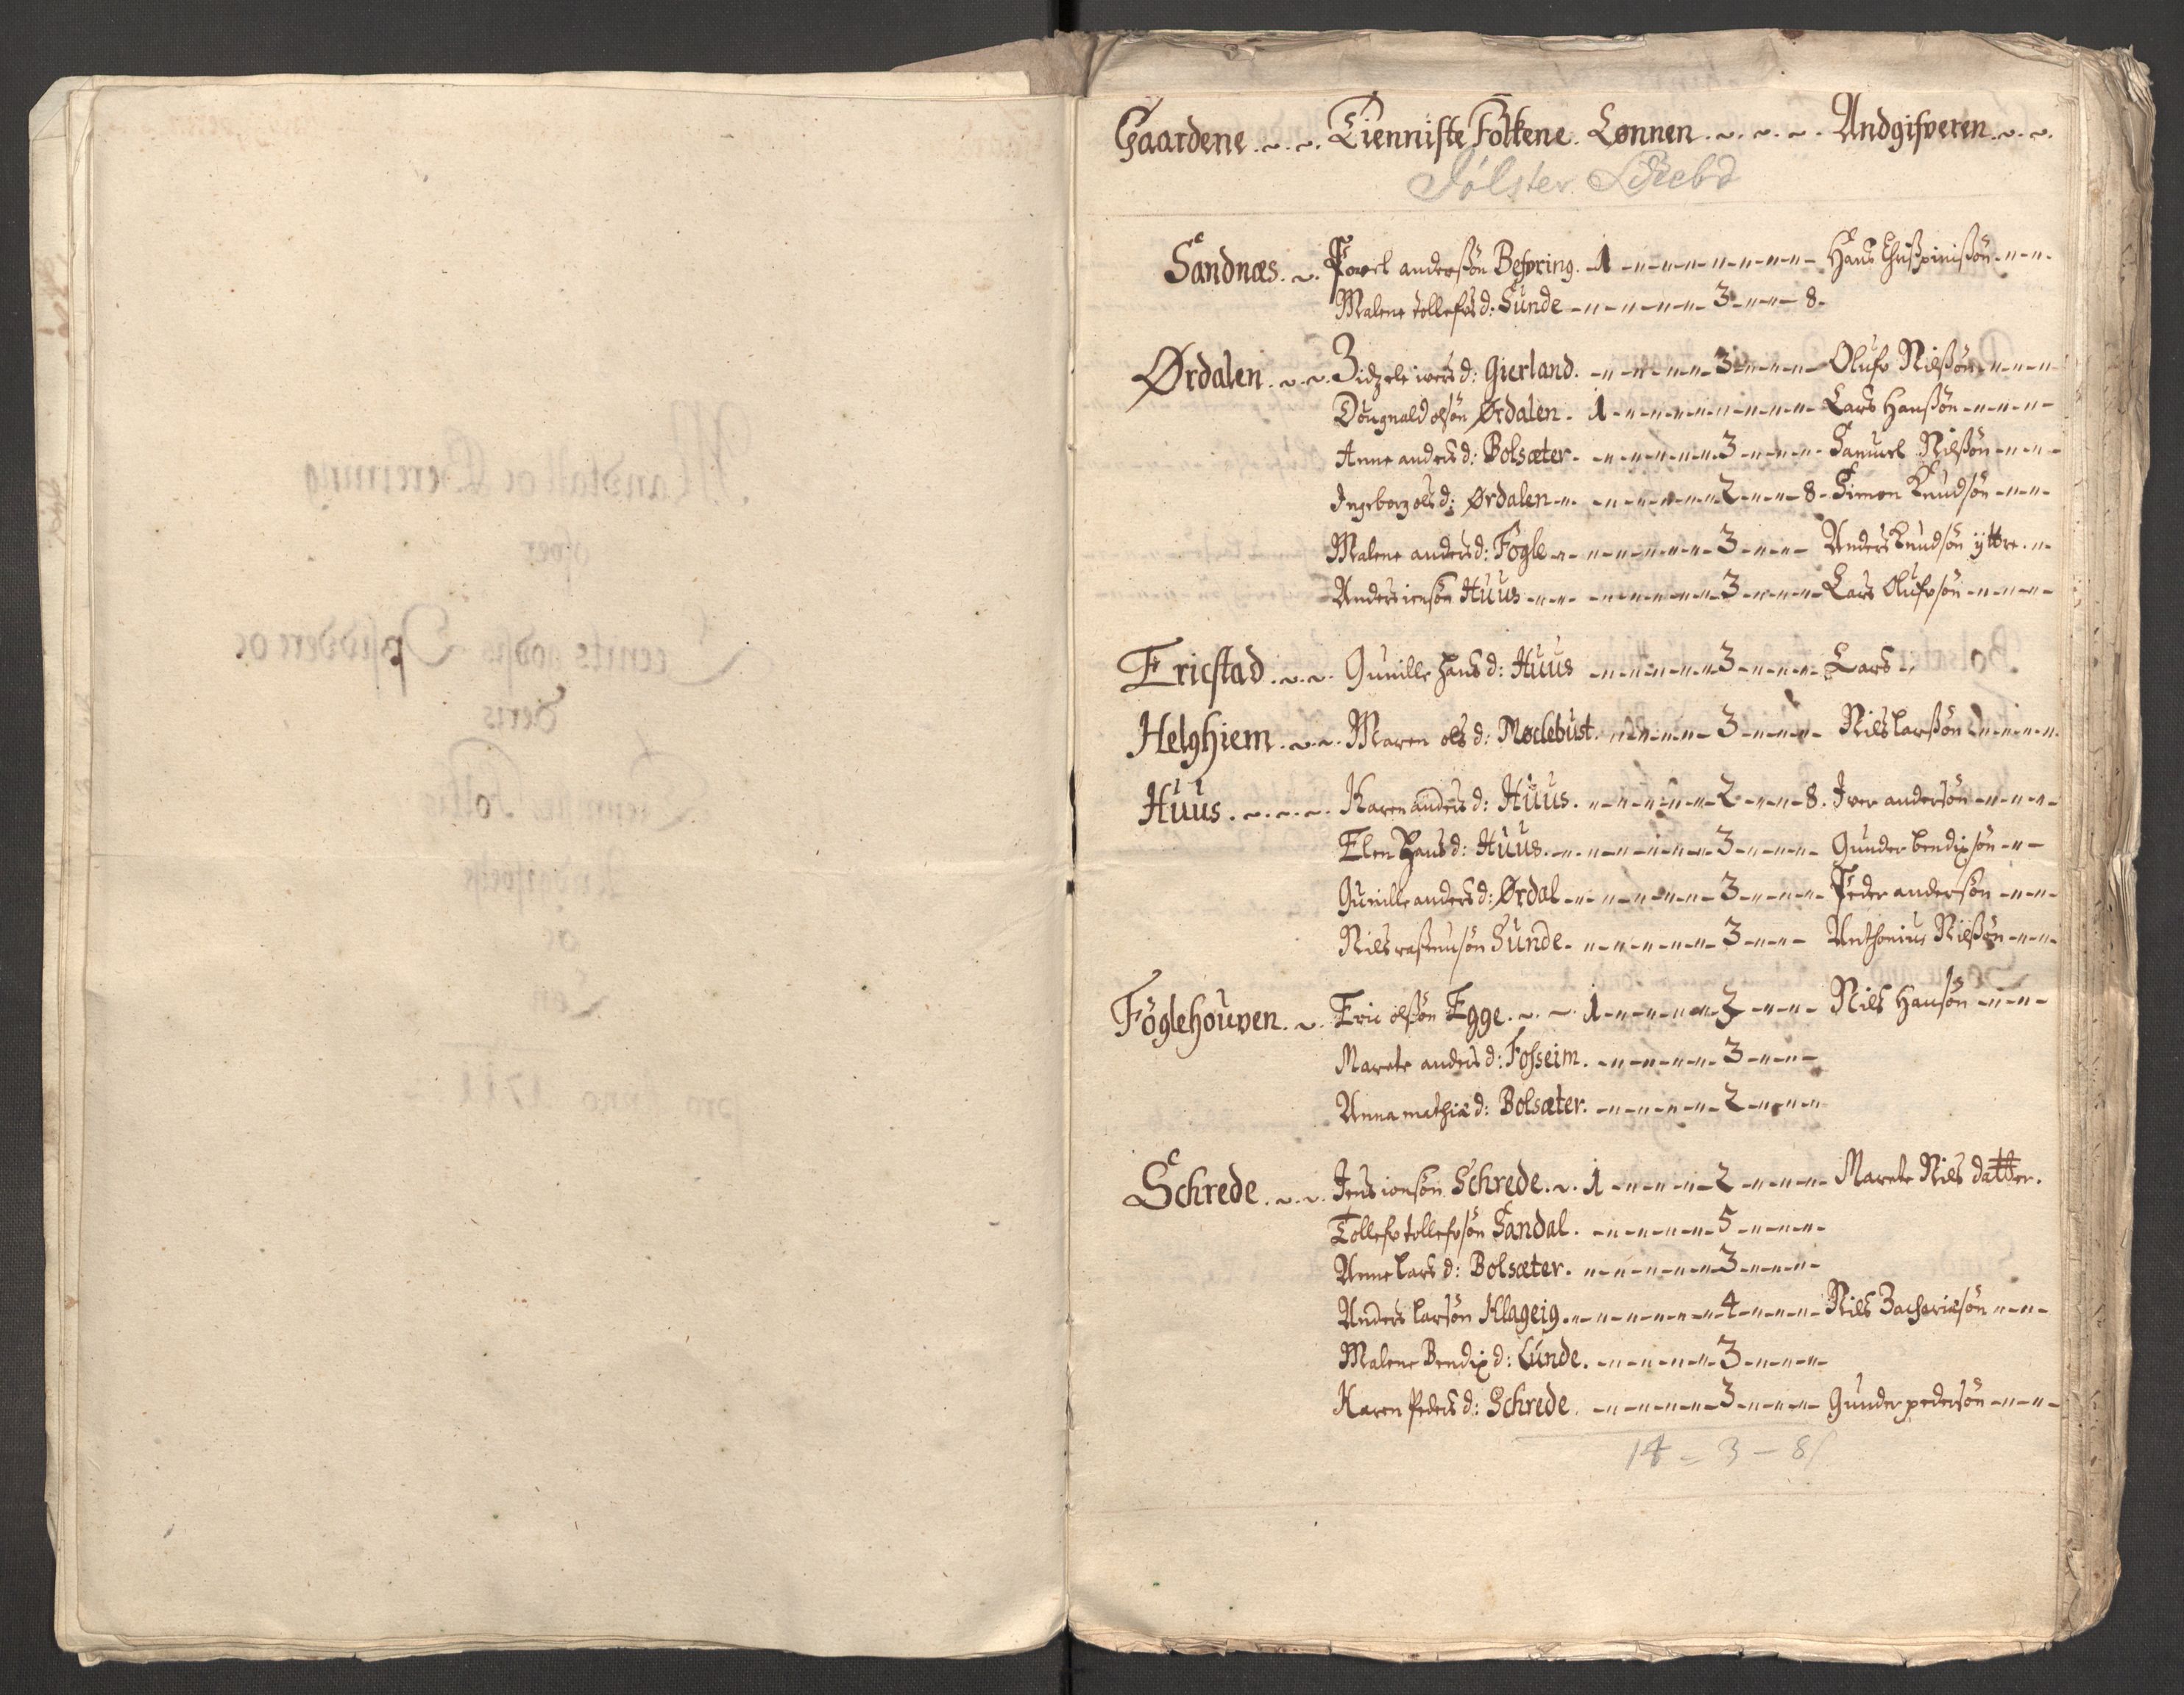 Gaardene . ~ . ~ . Tienniste Folkene . Lønnen . ~ . ~ . ~ . Andgifveren . ~ . ~ .
Jølster
Sandnæs . ~ . Powel anderßön Befring . 1 Hans Chrispinißön
Malene tollefsd: Sunde 3 8
Ørdalen . ~ . ~ . Zidzele iversd: Gierland . 3 Olufv Nilßön
Dougnald olsön Ørdalen . 1 Lars Hanßön
Anne andersd: Bolsæter . 3 Samuel Nilßön
Ingeborg olsd: Ørdalen 2 8 Simon Knudsön
Malene andersd: Fögle 3 Anders Knudsön ÿttre
Anders iensön Huus 3 Lars Olufvsön
Ericstad . ~ . ~ . Gunille Hansd: Huus 3 Lars
Helghiem . ~ . ~ . Maren olsd: Møclebust . 3 Nils larßön
Huus . ~ . ~ . ~ . Karen andersd: Huus . 2 8 . Iver andersön
Elen Hansd: Huus . 3 Gunder bendixsön
Gunille andersd: Ørdal 3 Peder andersön
Nils raßmusön Sunde . 3 Anthonius Nilßön
Föglehouven . ~ . Eric olßön Egge . ~ . ~ . 1 2 Nils Hansön
Marete andersd: Fosseim . 3
Anna mathiæd: Bolsæter . 2
Schrede . ~ . ~ . Jens ionsön Schrede . ~ . 1 2 Marete Nils datter .
Tollefv tollefvsön Sandal . 5
Anne larsd: Bolsæter . 3
Anders larsön Klageig . 4 Nils Zachariæsön
Malene Bendixd: Lunde . 3
Karen Pedersd: Schrede . 3 Gunder pedersön
14 = 3 - 8